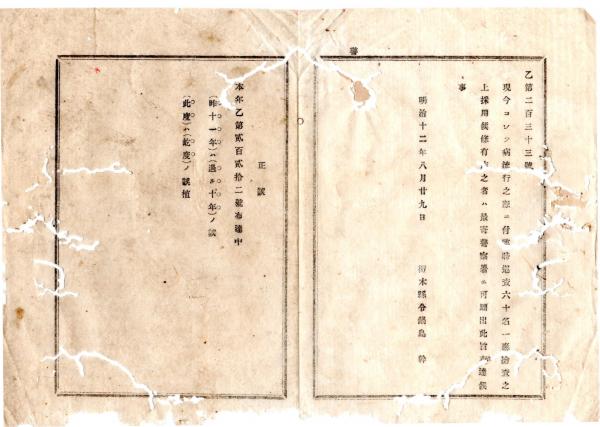 警
乙第二百三十三號
現今コレラ病流行之際ニ付臨時巡査六十名一應檢查之
上採用候條有志之者ハ最寄警察署ニ可願出此旨布達候
事
明治十二年八月廿九日
栃木縣令鍋島 幹
正誤
本年乙第貳百貳拾二號布達中
(昨十一年)ハ(過ル十年)ノ誤
(此度)ハ(故度)ノ誤植